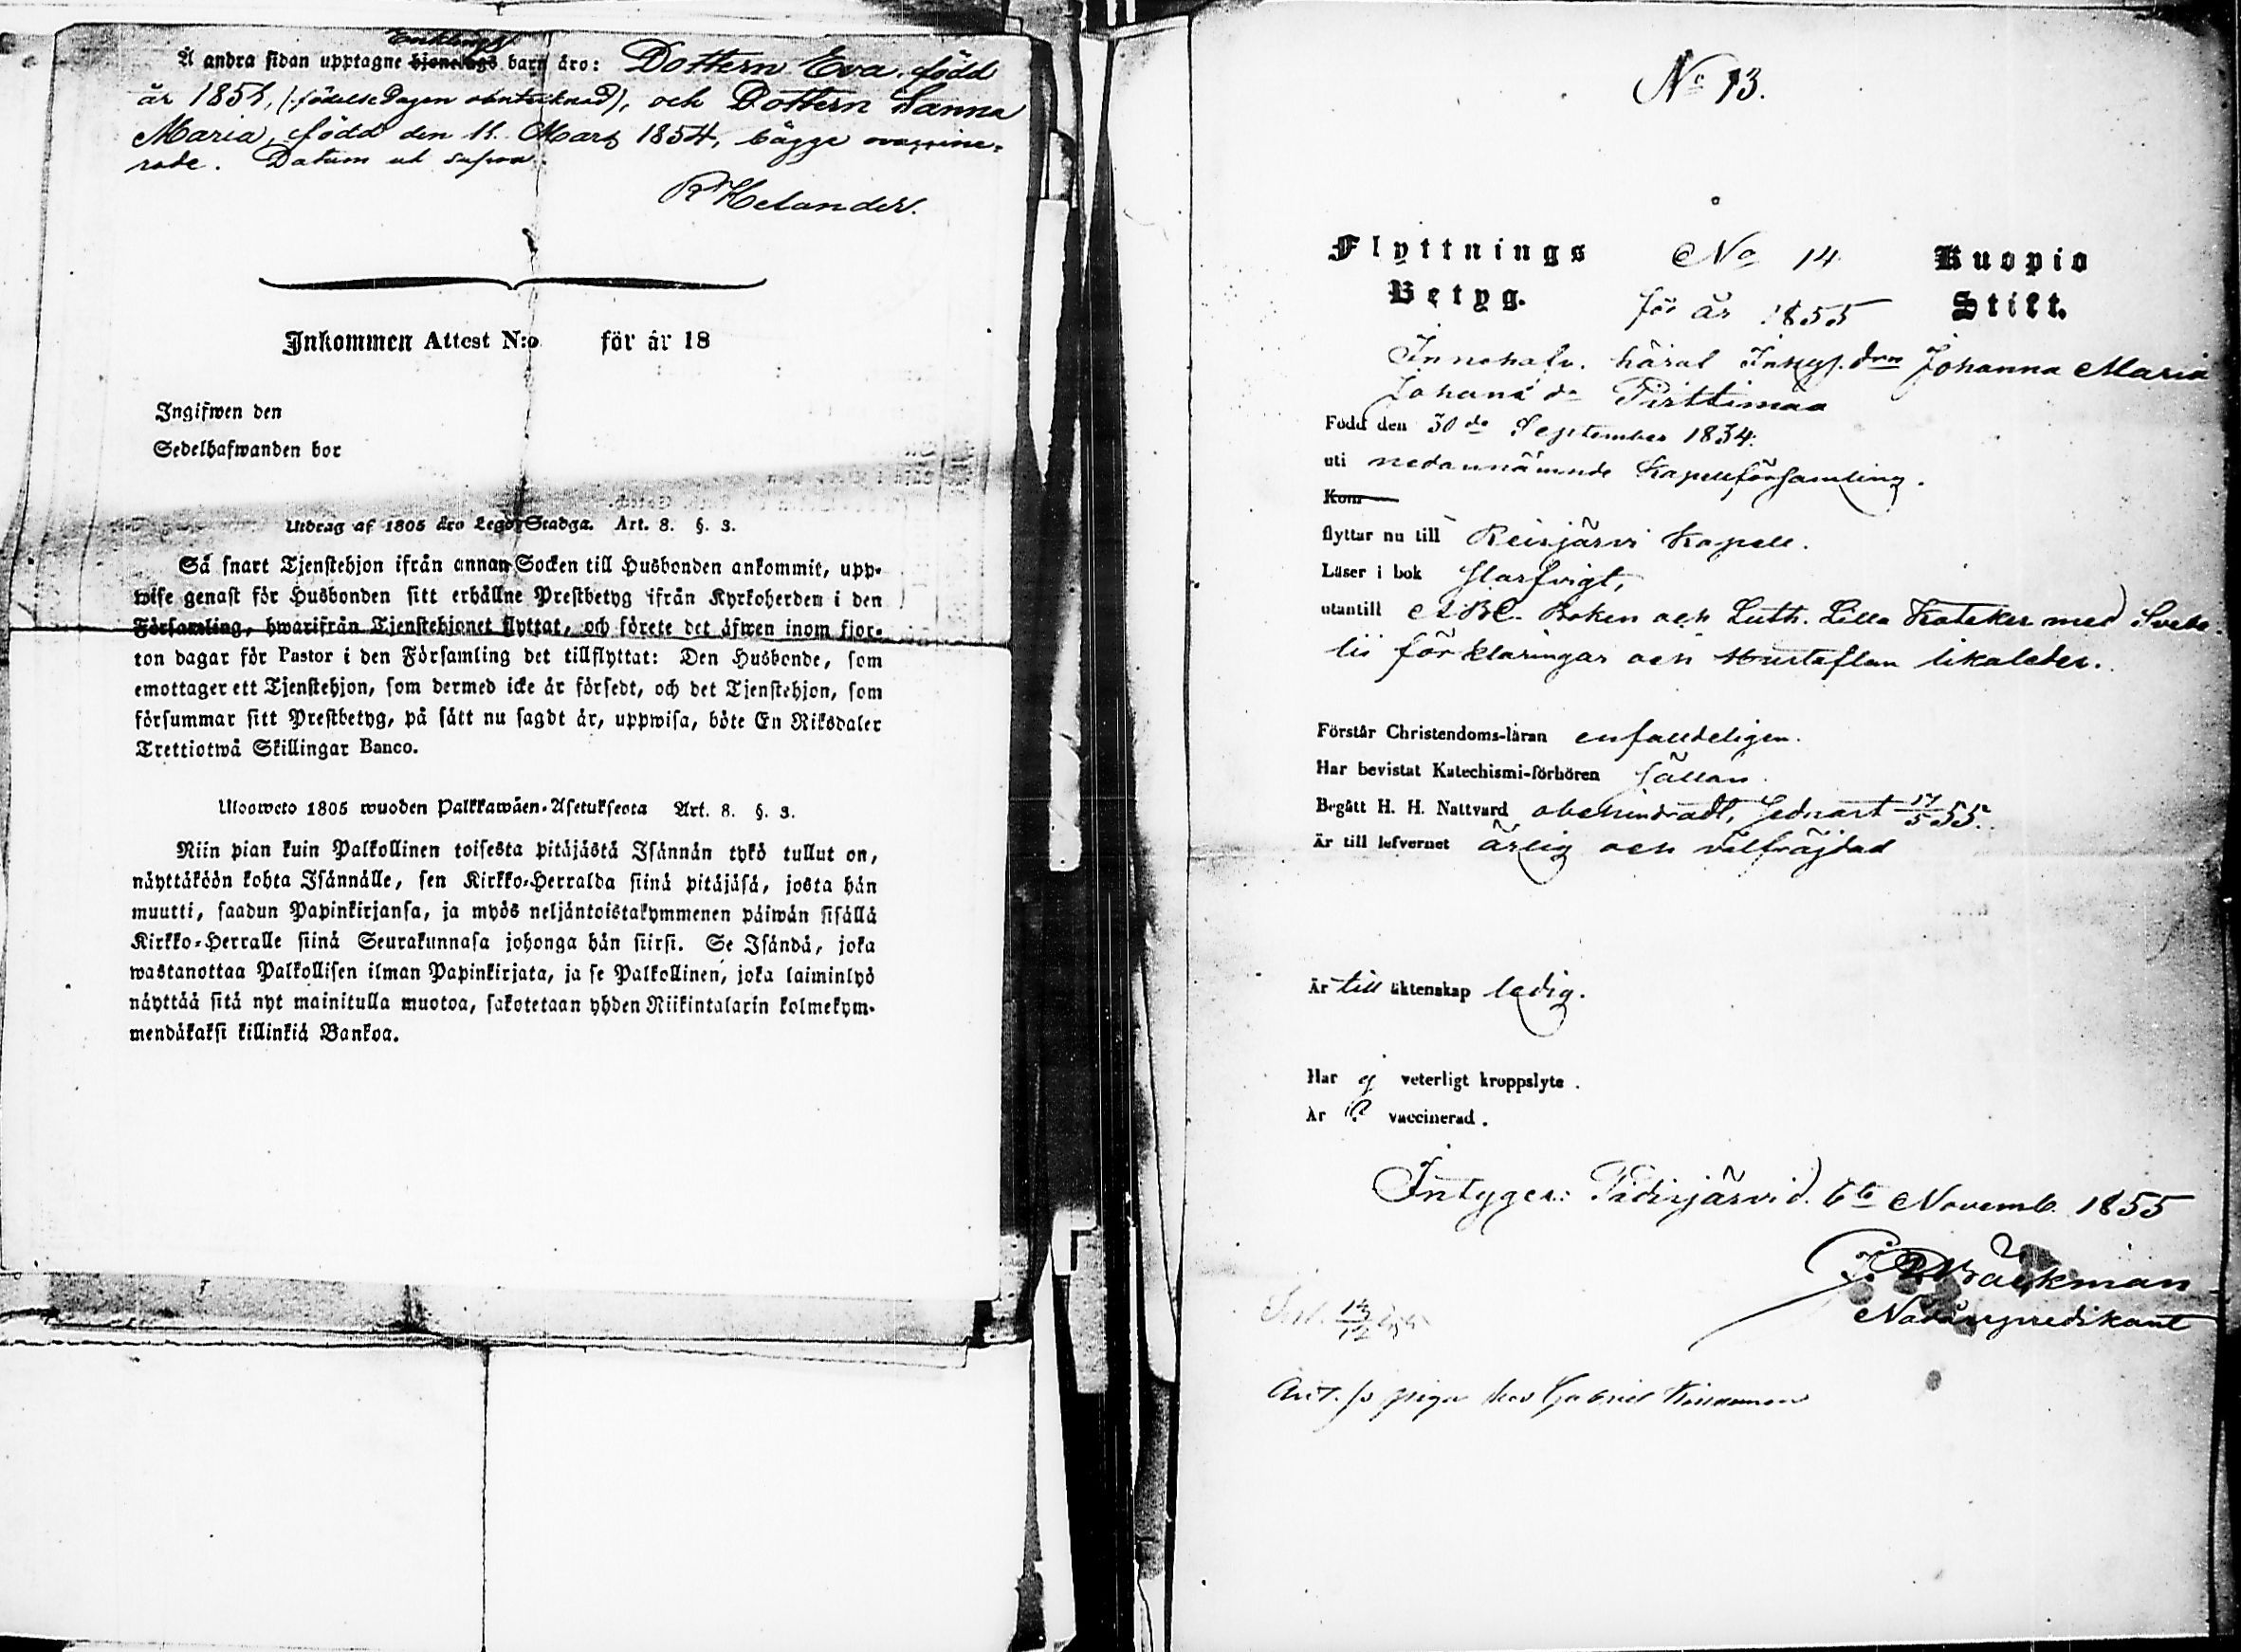 Enklings
Å andra sidan upptagne hjonelags barn äro: Dottern Eva, född
år 1851, (födelsedagen obekant), och Dottern Sanna
Maria, född den 11. Mars 1854, bägge ovaccine-
rade. Datum ut supra.
R Helander.
Inkommen Attest N:o för år 18
Ingifwen den
Sedelhafwanden bor
Utdrag af 1805 års Lego-Stadga. Art. 8. §. 3.
Så snart Tjenstehjon ifrån annan Socken till Husbonden ankommit, upp-
wise genast för Husbonden sitt erhållne Prestbetyg ifrån Kyrkoherden i den
Församling, hwarifrån Tjenstehjonet flyttat, och förete det äfwen inom fjor-
ton dagar för Pastor i den Församling det tillflyttat: Den Husbonde, som
emottager ett Tjenstehjon, som dermed icke är försedt, och det Tjenstehjon, som
försummar sitt Prestbetyg, på sätt nu sagdt är, uppwisa, böte En Riksdaler
Trettiotwå Skillingar Banco.
Ulosweto 1805 wuoden Palkkawäen-Asetuksesta Art. 8. §. 3.
Niin pian kuin Palkollinen toisesta pitäjästä Isännän tykö tullut on,
näyttäköön kohta Isännälle, sen Kirkko-Herralda siinä pitäjäsä, josta hän
muutti, saadun Papinkirjansa, ja myös neljäntoistakymmenen päiwän sisällä
Kirkko-Herralle siinä Seurakunnasa johonga hän siirsi. Se Isändä, joka
wastanottaa Palkollisen ilman Papinkirjata, ja se Palkollinen, joka laiminlyö
näyttää sitä nyt mainitulla muotoa, sakotetaan yhden Riikintalarin kolmekym-
mendäkaksi killinkiä Bankoa.
No 13.
Flyttnings No 14 Kuopio
Betyg. för år 1855 Stift.
Innehafv. häraf Inhys. dr Johanna Maria
Johans dr Pirttimaa
Född den 30de September 1834.
uti nedannämnde Kapellförsamling.
Kom
flyttar nu till Reisjärvi Kapell.
Läser i bok Slarfvigt,
utantill ABC-Boken och Luth. Lilla Kateker med Svebe-
lii förklaringar och Hustaflan likaledes.
Förstår Christendoms-läran enfaldeligen.
Har bevistat Katechismi-förhören sällan.
Begått H. H. Nattvard obehindradt, Sednast 17/5 55.
Är till lefvernet ärlig och välfräjdad
Är till äktenskap ledig.
Har ej veterligt kroppslyte.
Är vaccinerad.
Intygar: Pidisjärvi d. 6te Novemb. 1855
Bäckman
Nådårspredikant
Ant. som piga hos Gabriel